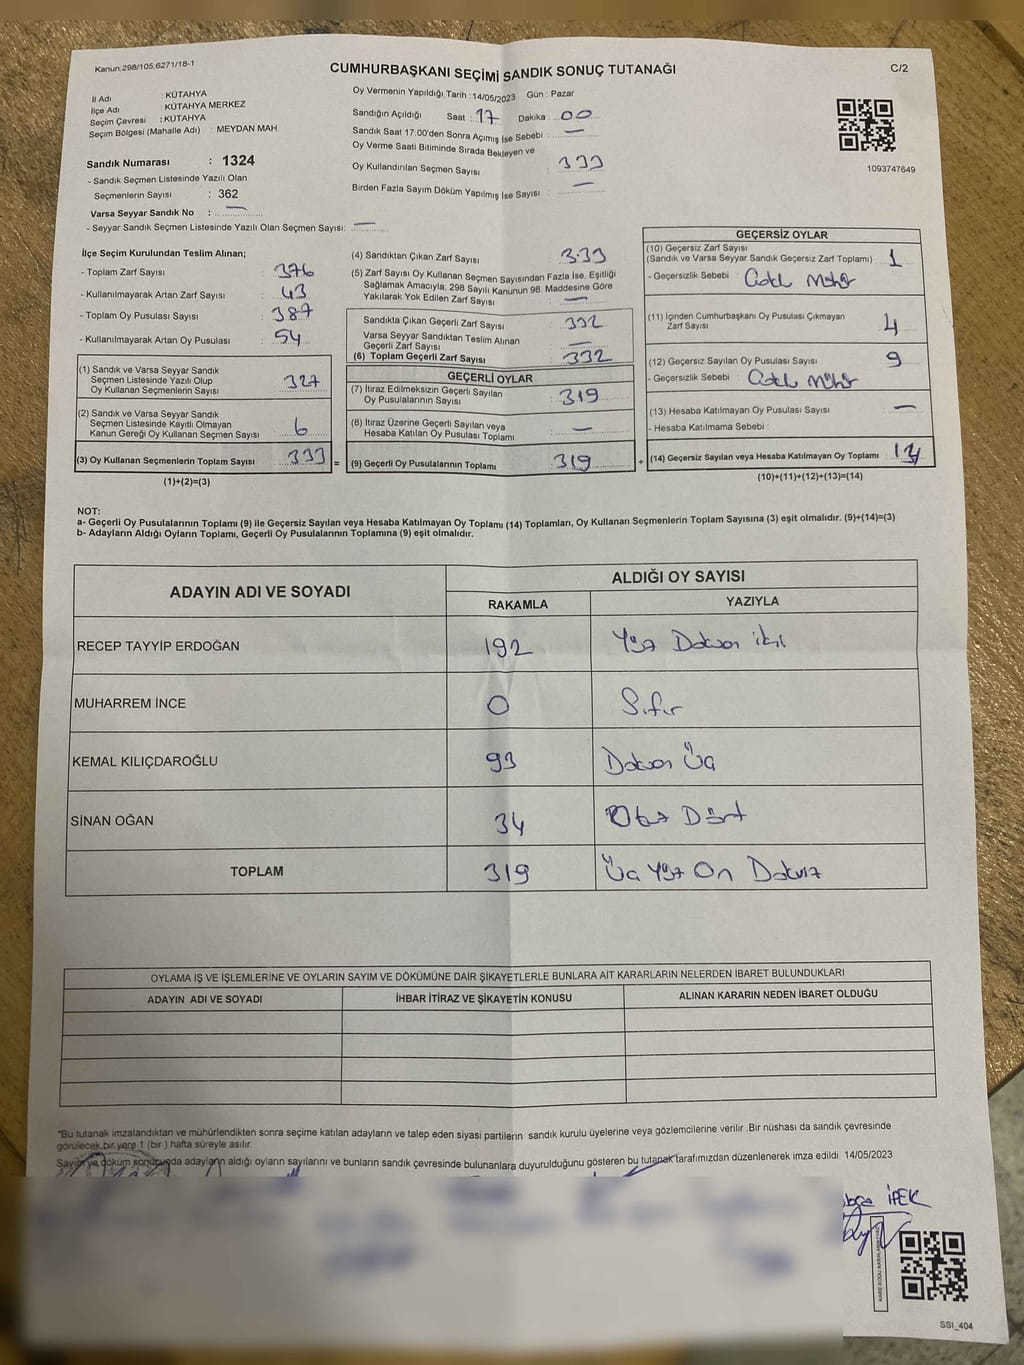 Kanun:298/105,6271/18-1
CUMHURBAŞKANI SEÇİMİ SANDIK SONUÇ TUTANAĞI
C/2
İl Adı : KÜTAHYA
İlçe Adı : KÜTAHYA MERKEZ
Seçim Çevresi : KÜTAHYA
Seçim Bölgesi (Mahalle Adı) : MEYDAN MAH.
Sandık Numarası : 1324
- Sandık Seçmen Listesinde Yazılı Olan
Seçmenlerin Sayısı : 362
Varsa Seyyar Sandık No : —
- Seyyar Sandık Seçmen Listesinde Yazılı Olan Seçmen Sayısı: —
Oy Vermenin Yapıldığı Tarih : 14/05/2023 Gün : Pazar
Sandığın Açıldığı Saat : 17 Dakika : 00
Sandık Saat 17:00'den Sonra Açımış İse Sebebi : —
Oy Verme Saati Bitiminde Sırada Bekleyen ve
Oy Kullandırılan Seçmen Sayısı : 333
Birden Fazla Sayım Döküm Yapılmış İse Sayısı : —
1093747649
İlçe Seçim Kurulundan Teslim Alınan;
- Toplam Zarf Sayısı : 376
- Kullanılmayarak Artan Zarf Sayısı : 43
- Toplam Oy Pusulası Sayısı : 387
- Kullanılmayarak Artan Oy Pusulası : 54
(1) Sandık ve Varsa Seyyar Sandık
Seçmen Listesinde Yazılı Olup
Oy Kullanan Seçmenlerin Sayısı : 327
(2) Sandık ve Varsa Seyyar Sandık
Seçmen Listesinde Kayıtlı Olmayan
Kanun Gereği Oy Kullanan Seçmen Sayısı : 6
(3) Oy Kullanan Seçmenlerin Toplam Sayısı : 333 =
(1)+(2)=(3)
(4) Sandıktan Çıkan Zarf Sayısı : 333
(5) Zarf Sayısı Oy Kullanan Seçmen Sayısından Fazla İse, Eşitliği
Sağlamak Amacıyla, 298 Sayılı Kanunun 98. Maddesine Göre
Yakılarak Yok Edilen Zarf Sayısı : —
Sandıkta Çıkan Geçerli Zarf Sayısı : 332
Varsa Seyyar Sandıktan Teslim Alınan
Geçerli Zarf Sayısı : —
(6) Toplam Geçerli Zarf Sayısı : 332
GEÇERLİ OYLAR
(7) İtiraz Edilmeksizin Geçerli Sayılan
Oy Pusulalarının Sayısı : 319
(8) İtiraz Üzerine Geçerli Sayılan veya
Hesaba Katılan Oy Pusulası Toplamı : —
(9) Geçerli Oy Pusulalarının Toplamı : 319 +
GEÇERSİZ OYLAR
(10) Geçersiz Zarf Sayısı
(Sandık ve Varsa Seyyar Sandık Geçersiz Zarf Toplamı) : 1
- Geçersizlik Sebebi :
(11) İçinden Cumhurbaşkanı Oy Pusulası Çıkmayan
Zarf Sayısı : 4
(12) Geçersiz Sayılan Oy Pusulası Sayısı : 9
- Geçersizlik Sebebi :
(13) Hesaba Katılmayan Oy Pusulası Sayısı : —
- Hesaba Katılmama Sebebi :
(14) Geçersiz Sayılan veya Hesaba Katılmayan Oy Toplamı :
(10)+(11)+(12)+(13)=(14)
NOT:
a- Geçerli Oy Pusulalarının Toplamı (9) ile Geçersiz Sayılan veya Hesaba Katılmayan Oy Toplamı (14) Toplamları, Oy Kullanan Seçmenlerin Toplam Sayısına (3) eşit olmalıdır. (9)+(14)=(3)
b- Adayların Aldığı Oyların Toplamı, Geçerli Oy Pusulalarının Toplamına (9) eşit olmalıdır.
ADAYIN ADI VE SOYADI
ALDIĞI OY SAYISI
RAKAMLA
YAZIYLA
RECEP TAYYİP ERDOĞAN 192 Yüz Doksan iki
MUHARREM İNCE 0 Sıfır
KEMAL KILIÇDAROĞLU 93 Doksan Üç
SİNAN OĞAN 34 Otuz Dört
TOPLAM 319 Üç Yüz On Dokuz
OYLAMA İŞ VE İŞLEMLERİNE VE OYLARIN SAYIM VE DÖKÜMÜNE DAİR ŞİKAYETLERLE BUNLARA AİT KARARLARIN NELERDEN İBARET BULUNDUKLARI
ADAYIN ADI VE SOYADI
İHBAR İTİRAZ VE ŞİKAYETİN KONUSU
ALINAN KARARIN NEDEN İBARET OLDUĞU
*Bu tutanak imzalandıktan ve mühürlendikten sonra seçime katılan adayların ve talep eden siyasi partilerin sandık kurulu üyelerine veya gözlemcilerine verilir .Bir nüshası da sandık çevresinde
görülecek bir yere 1 (bir ) hafta süreyle asılır.
Sayım ve döküm sonucunda adayların aldığı oyların sayılarını ve bunların sandık çevresinde bulunanlara duyurulduğunu gösteren bu tutanak tarafımızdan düzenlenerek imza edildi. 14/05/2023
İPEK
KARE KODU KARALAMAYINIZ
SSI_404